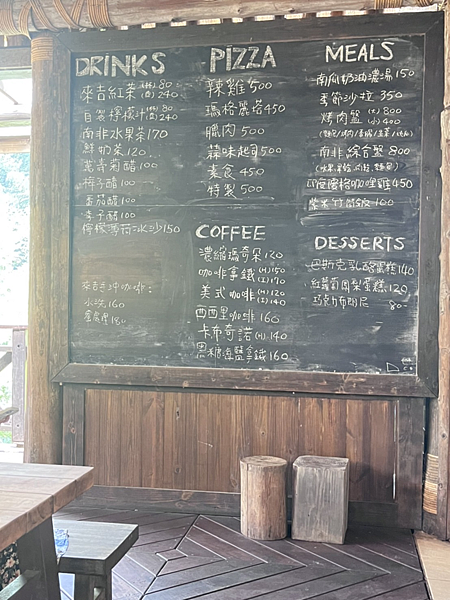 DRINKS
來吉紅茶 (杯) 80
(壺) 240
自製檸檬汁 (杯) 80
(壺) 240
南非水果茶 170
鮮奶茶 120
萬壽菊醋 100
梅子醋 100
蕃茄醋 100
李子醋 100
檸檬薄荷冰沙 150
來吉手沖咖啡:
水洗 160
蜜處理 180
PIZZA
辣雞 500
瑪格麗塔 450
臘肉 500
蒜味起司 500
素食 450
特製 500
COFFEE
濃縮瑪奇朵 120
咖啡拿鐵 (H) 150
(I) 170
美式咖啡 (H) 120
(I) 140
西西里咖啡 160
卡布奇諾 (H) 140
黑糖海鹽拿鐵 160
MEALS
南瓜奶油濃湯 150
季節沙拉 350
烤肉盤 (大) 800
(小) 400
南非綜合盤 800
印度優格咖哩雞 450
紫米竹筒飯 100
DESSERTS
巴斯克乳酪蛋糕 140
紅蘿蔔鳳梨蛋糕 120
巧克力布朗尼 80